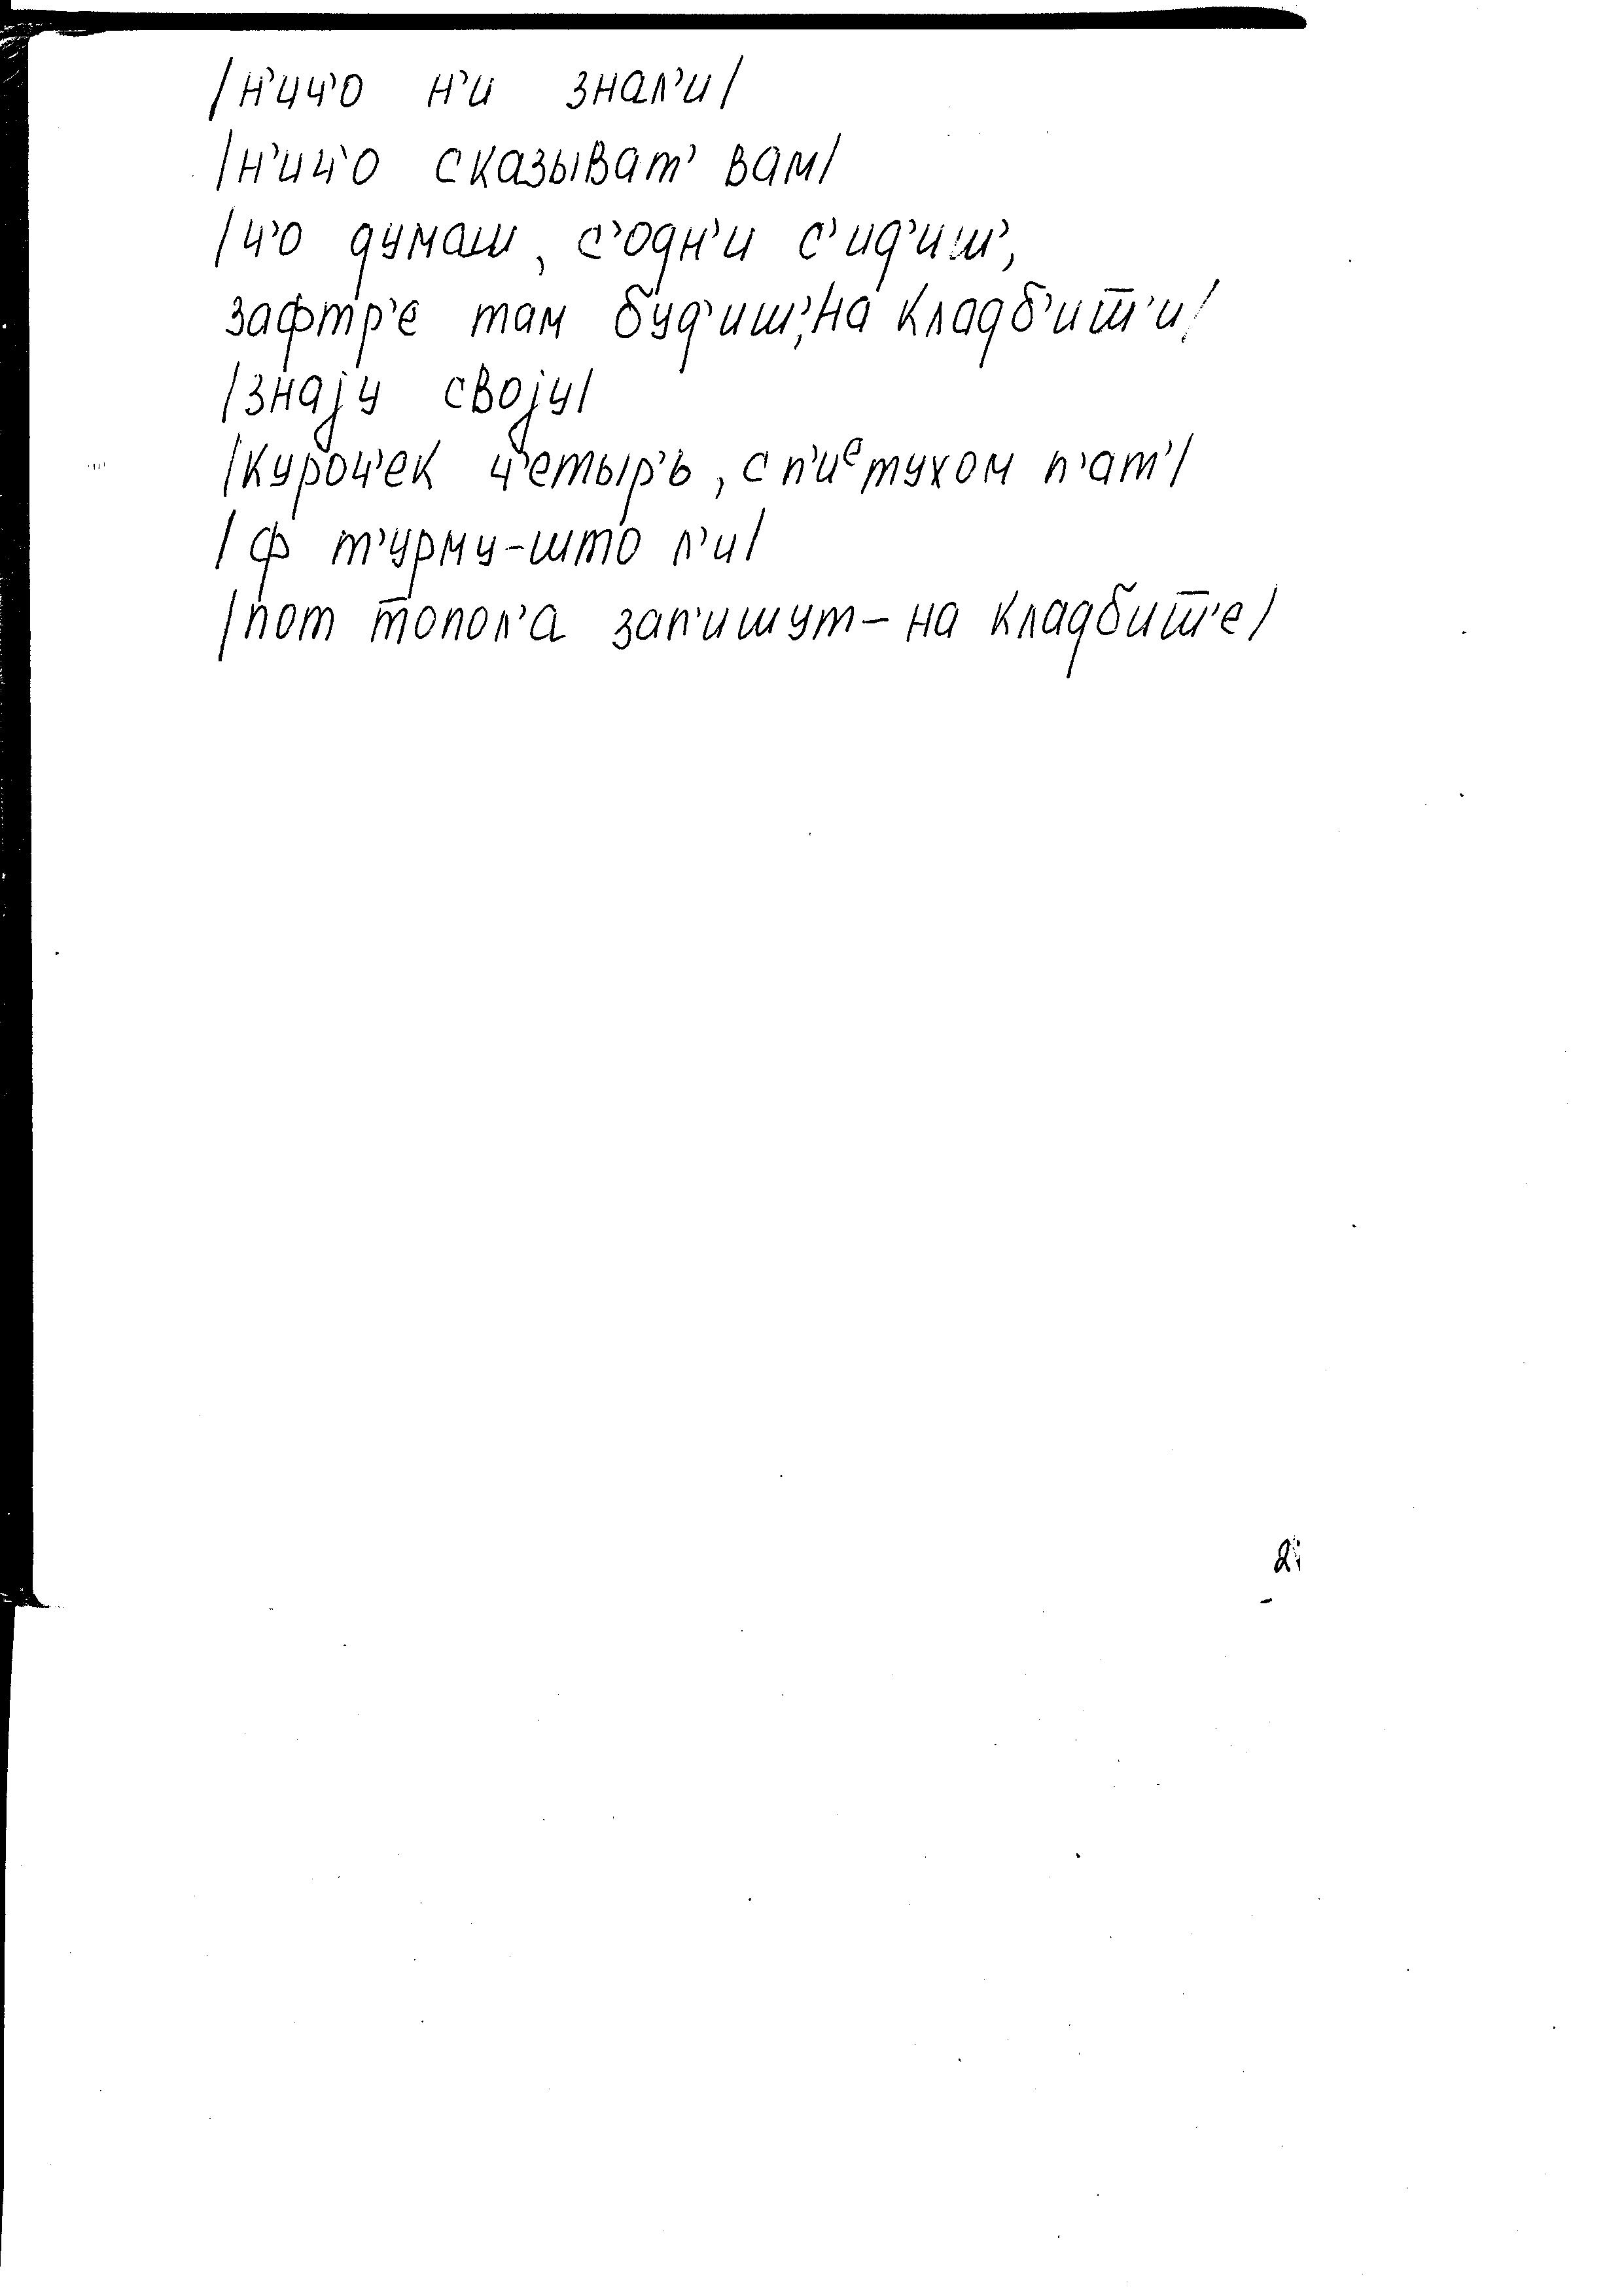 /н'ич'о н'и знал'и/
/н'ич'о сказыват' вам/
/ч'о думаш, с'одн'и с'ид'иш',
зафтр'е там буд'иш', на кладб'ит̅'и/
/знаjу своjу/
/куроч'ек ч'етыр'ь, с п'иᵉтухом п'ат'/
/ф т'урму-што л'и/
/пот топол'а зап'ишут – на кладбит̅'е/